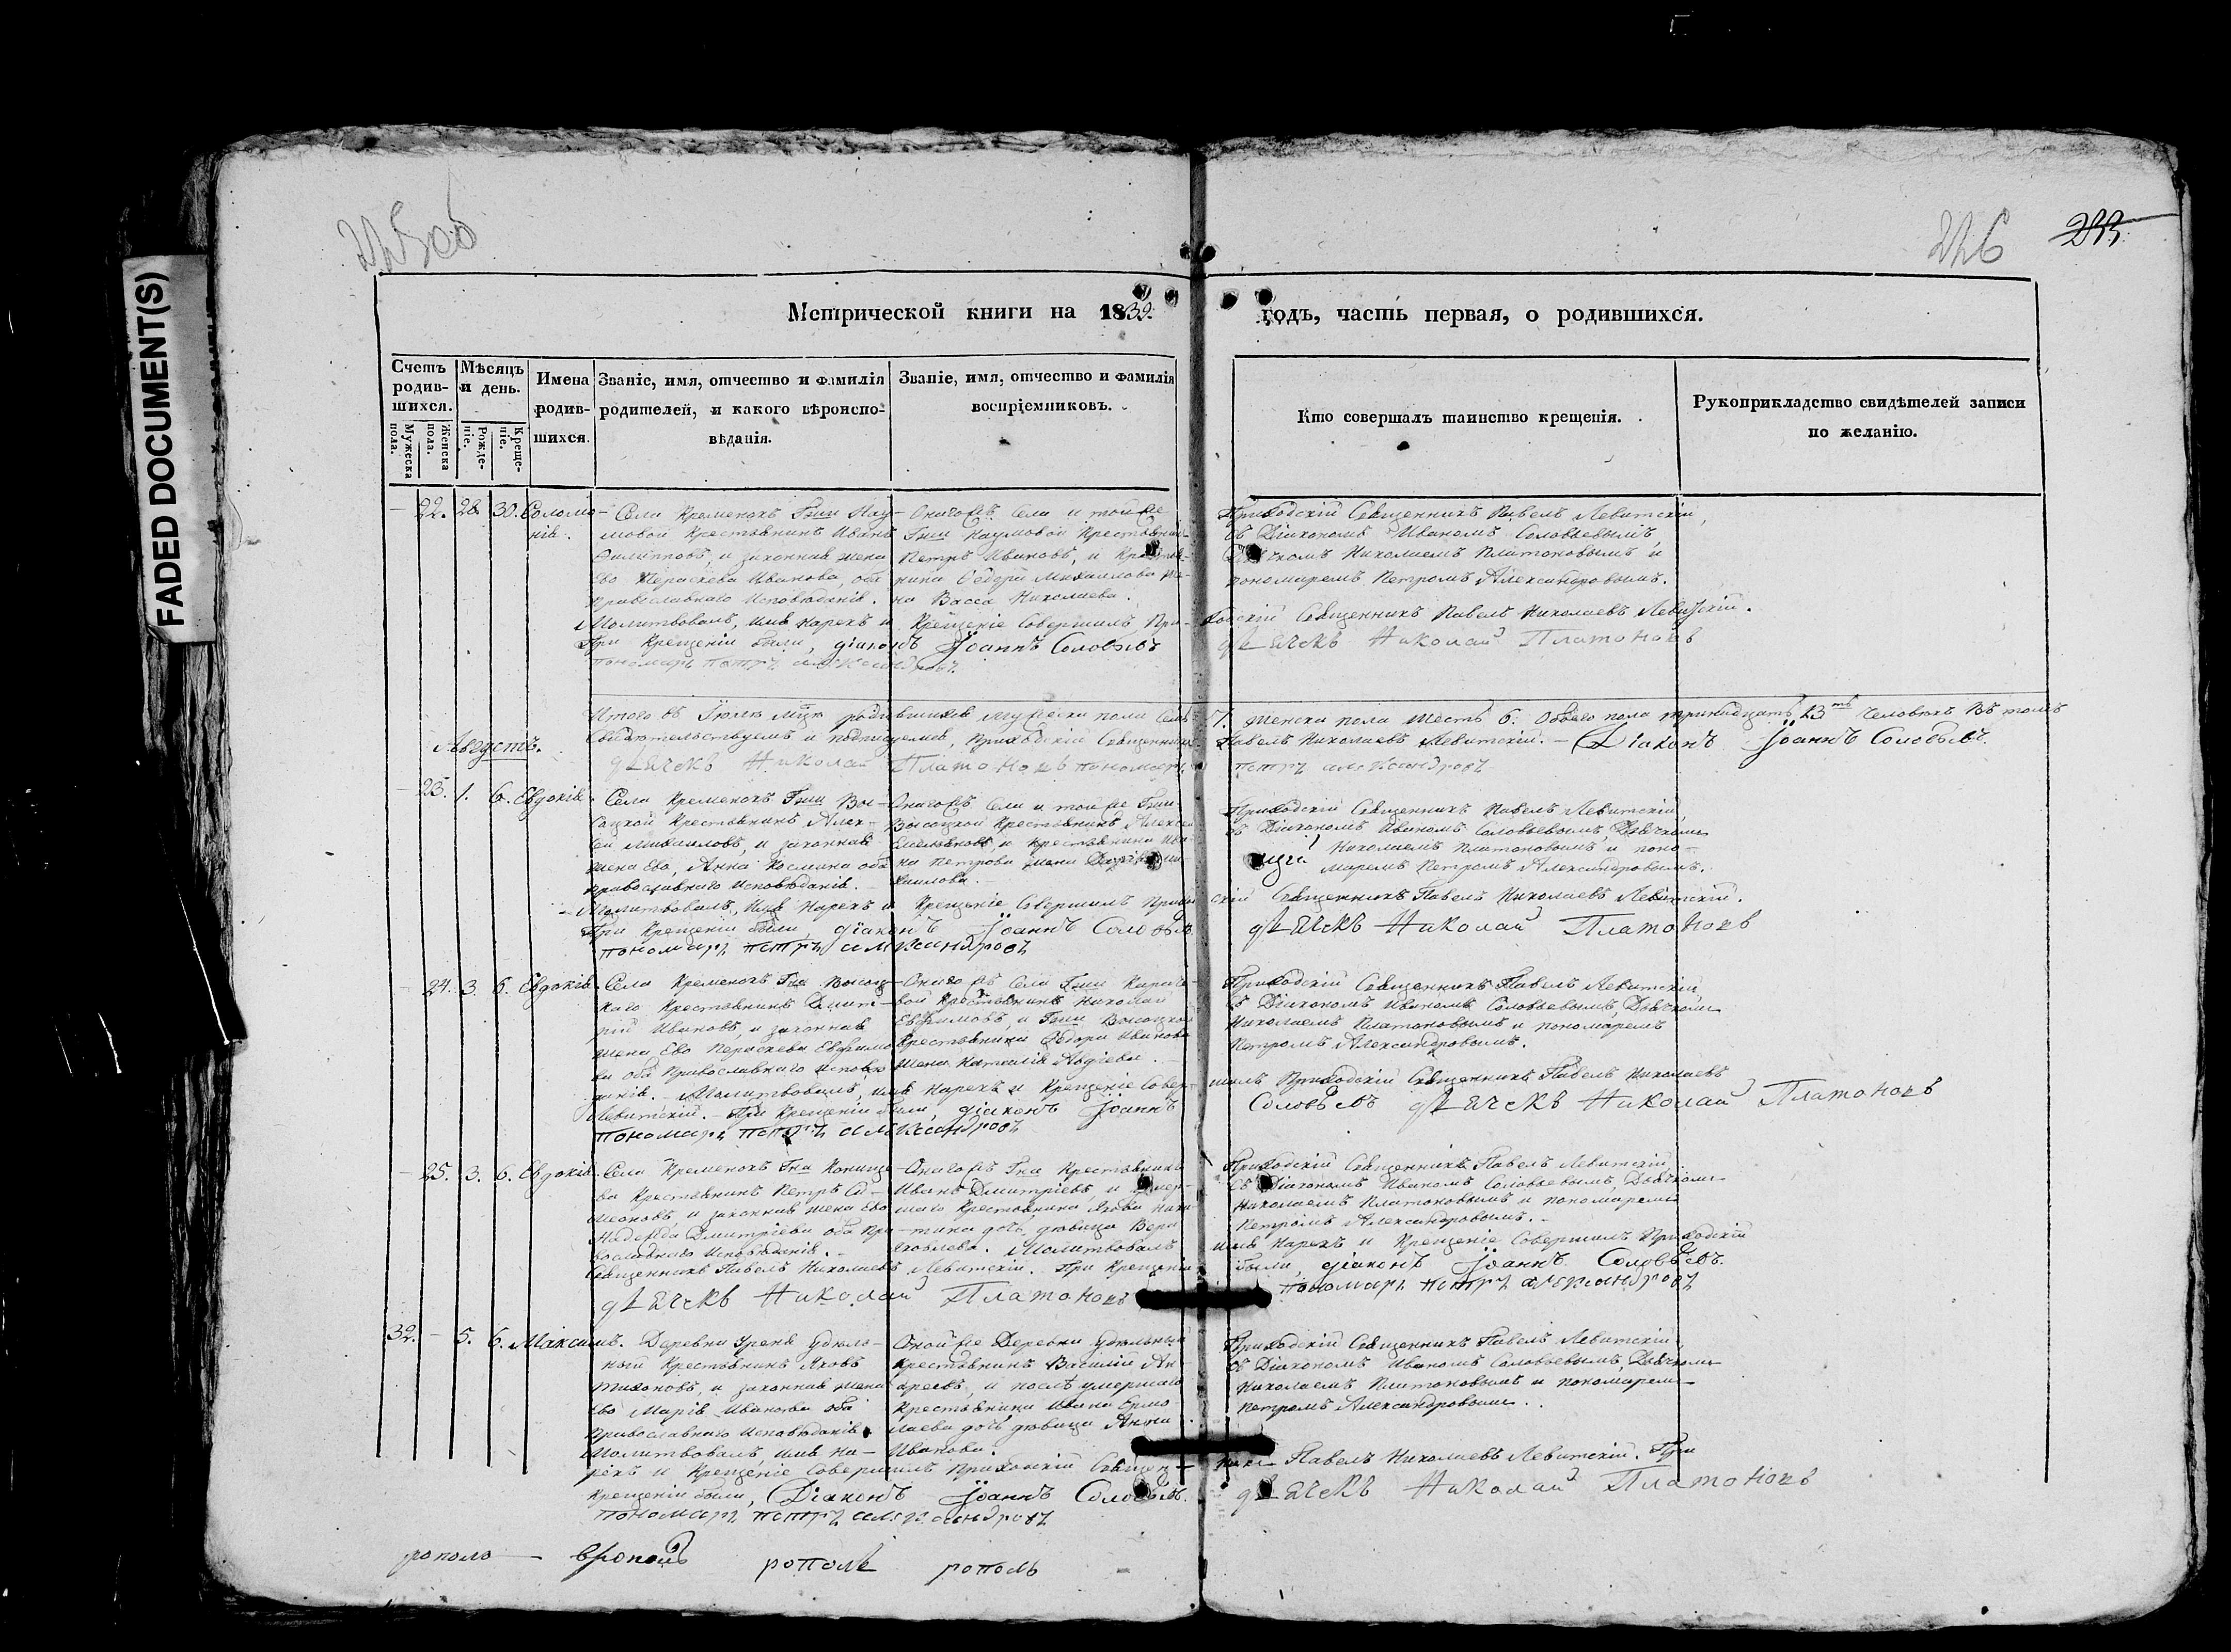 225об
226
233
FADED DOCUMENT(S)
Метрической книги на 1839. годъ, часть первая, о родившихся.
Счетъ родившихся.
Мужеска пола.
Женска пола.
Мѣсяцъ и день.
Рожденіе.
Крещеніе.
Имена родившихся.
Званіе, имя, отчество и фамилія родителей, и какого вѣроисповѣданія.
Званіе, имя, отчество и фамилія воспріемниковъ.
Кто совершалъ таинство крещенія.
Рукоприкладство свидѣтелей записи по желанію.
22. 28. 30. Соломонія.
Села Кременокъ Гжи Нау-
мовой Крестьянинъ Иванъ
Филипповъ, и законная жена
Его Параскева Иванова, оба
православнаго Исповѣданія.
Онагожъ Села и тойже
Гжи Наумовой Крестьянинъ
Петръ Ивановъ, и Крестья-
нина Ѳедора Михаилова же-
на Васса Николаева.
Приходскій Священникъ Павелъ Левитскій,
съ Діакономъ Иваномъ Соловьевымъ,
Дьячкомъ Николаемъ Платоновымъ и
пономаремъ Петромъ Александровымъ.
Молитвовалъ, имя нарекъ и Крещеніе Совершилъ При-
ходскій Священникъ Павелъ Николаевъ Левитскій.
При Крещеніи были, діаконъ Іоаннъ Соловьевъ
дьячекъ Николай Платоновъ
пономарь петръ александровъ
Итого въ Іюлѣ мцѣ родившихся мужеска пола Семь 7. женска пола шесть 6. обоего пола тринадцать 13ть человѣкъ Въ томъ
Свидѣтельствуемъ и подписуемся, Приходскій Священникъ Павелъ Николаевъ Левитскій. – Діаконъ Іоаннъ Соловьевъ.
дьячекъ Николай Платоновъ пономарь петръ александровъ
Августъ.
23. 1. 6. Евдокія.
Села Кременокъ Гжи Вы-
соцкой Крестьянинъ Алек-
сей Михаиловъ, и законная
жена Его, Анна Космина оба
православнаго исповѣданія.
Онагожъ Села и тойже Гжи
Высоцкой Крестьянинъ Алексей
Емельяновъ, и крестьянина Ива-
на Петрова жена Дарія Ми-
хаилова.
Приходскій Священникъ Павелъ Левитскій,
съ Діакономъ Иваномъ Соловьевымъ, Дьячкомъ
Николаемъ Платоновымъ и поно-
маремъ Петромъ Александровымъ.
Молитвовалъ, имя Нарекъ и Крещеніе Совершилъ Приход-
скій Священникъ Павелъ Николаевъ Левитскій.
При Крещеніи были, діаконъ Іоаннъ Соловьевъ
дьячекъ Николай Платоновъ
пономарь петръ александровъ
24. 3. 6. Евдокія.
Села Кременокъ Гна Высоц-
каго Крестьянинъ Дмит-
рій Ивановъ, и законная
жена Его Параскева Ефимо-
ва оба Православнаго исповѣ-
данія.
Онагожъ Села Гжи
Крестьянинъ Николай
Евфимовъ, и Гжи Высоцкой
Крестьянина Ѳедора Иванова
Жена Наталія Авдіева.
Приходскій Священникъ Павелъ Левитскій,
съ Діакономъ Иваномъ Соловьевымъ, Дьячкомъ
Николаемъ Платоновымъ и пономаремъ
Петромъ Александровымъ.
Молитвовалъ, имя Нарекъ и Крещеніе Совер-
шилъ Приходскій Священникъ Павелъ Николаевъ
Левитскій. – При Крещеніи были, діаконъ Іоаннъ
Соловьевъ дьячекъ Николай Платоновъ
пономарь петръ александровъ
25. 3. 6. Евдокія.
Села Кременокъ Гна
Крестьянинъ Петръ Си-
меоновъ, и законная жена Его
Надежда Дмитріева оба Пра-
вославнаго исповѣданія.
Онагожъ Гна Крестьянинъ
Иванъ Дмитріевъ, и умер-
шаго Крестьянина Якова Ники-
тина дочь, дѣвица Вера
Яковлева. Молитвовалъ
Приходскій Священникъ Павелъ Левитскій,
съ Діакономъ Иваномъ Соловьевымъ, Дьячкомъ
Николаемъ Платоновымъ и пономаремъ
Петромъ Александровымъ.
имя Нарекъ и Крещеніе Совершилъ Приходскій
Священникъ Павелъ Николаевъ Левитскій. При Крещеніи
были, діаконъ Іоаннъ Соловьевъ.
дьячекъ Николай Платоновъ
пономарь петръ александровъ
32. 5. 6. Максимъ.
Деревни Урень Удѣль-
ный Крестьянинъ Яковъ
Тихоновъ, и законная жена
Его Марія Иванова оба
Православнаго Исповѣданія.
Онойже Деревни Удѣльный
Крестьянинъ Василій Ан-
дреевъ, и послѣ умершаго
Крестьянина Ивана Ермо-
лаева дочь дѣвица Анна
Иванова.
Приходскій Священникъ Павелъ Левитскій,
съ Діакономъ Иваномъ Соловьевымъ, Дьячкомъ
Николаемъ Платоновымъ и пономаремъ
Петромъ Александровымъ.
Молитвовалъ, имя На-
рекъ и Крещеніе Совершилъ Приходскій Священ-
никъ Павелъ Николаевъ Левитскій. При
Крещеніи были, Діаконъ Іоаннъ Соловьевъ.
дьячекъ Николай Платоновъ
пономарь петръ александровъ